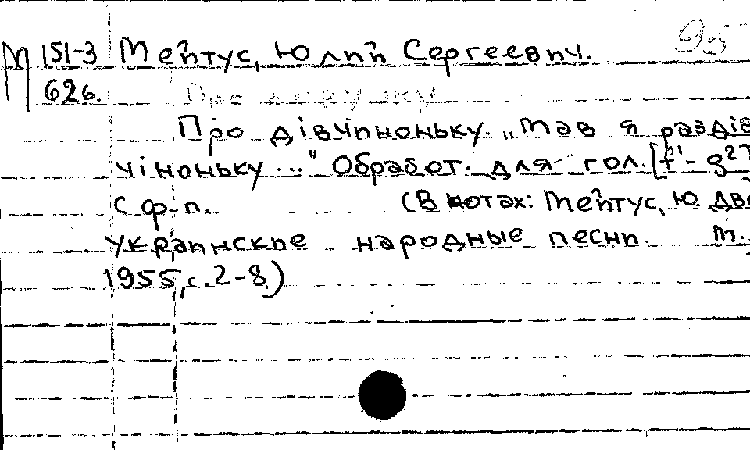 М 151-3 Мейтус, Юлий Сергеевич. 95
626.
Про дівчиноньку. „Мав я раздів
чіноньку..." Обработ. для гол. [f¹-g²]
с ф-п. (В нотах: Мейтус, Ю. Две
украинские народные песни. М.
1955, с. 2-8)